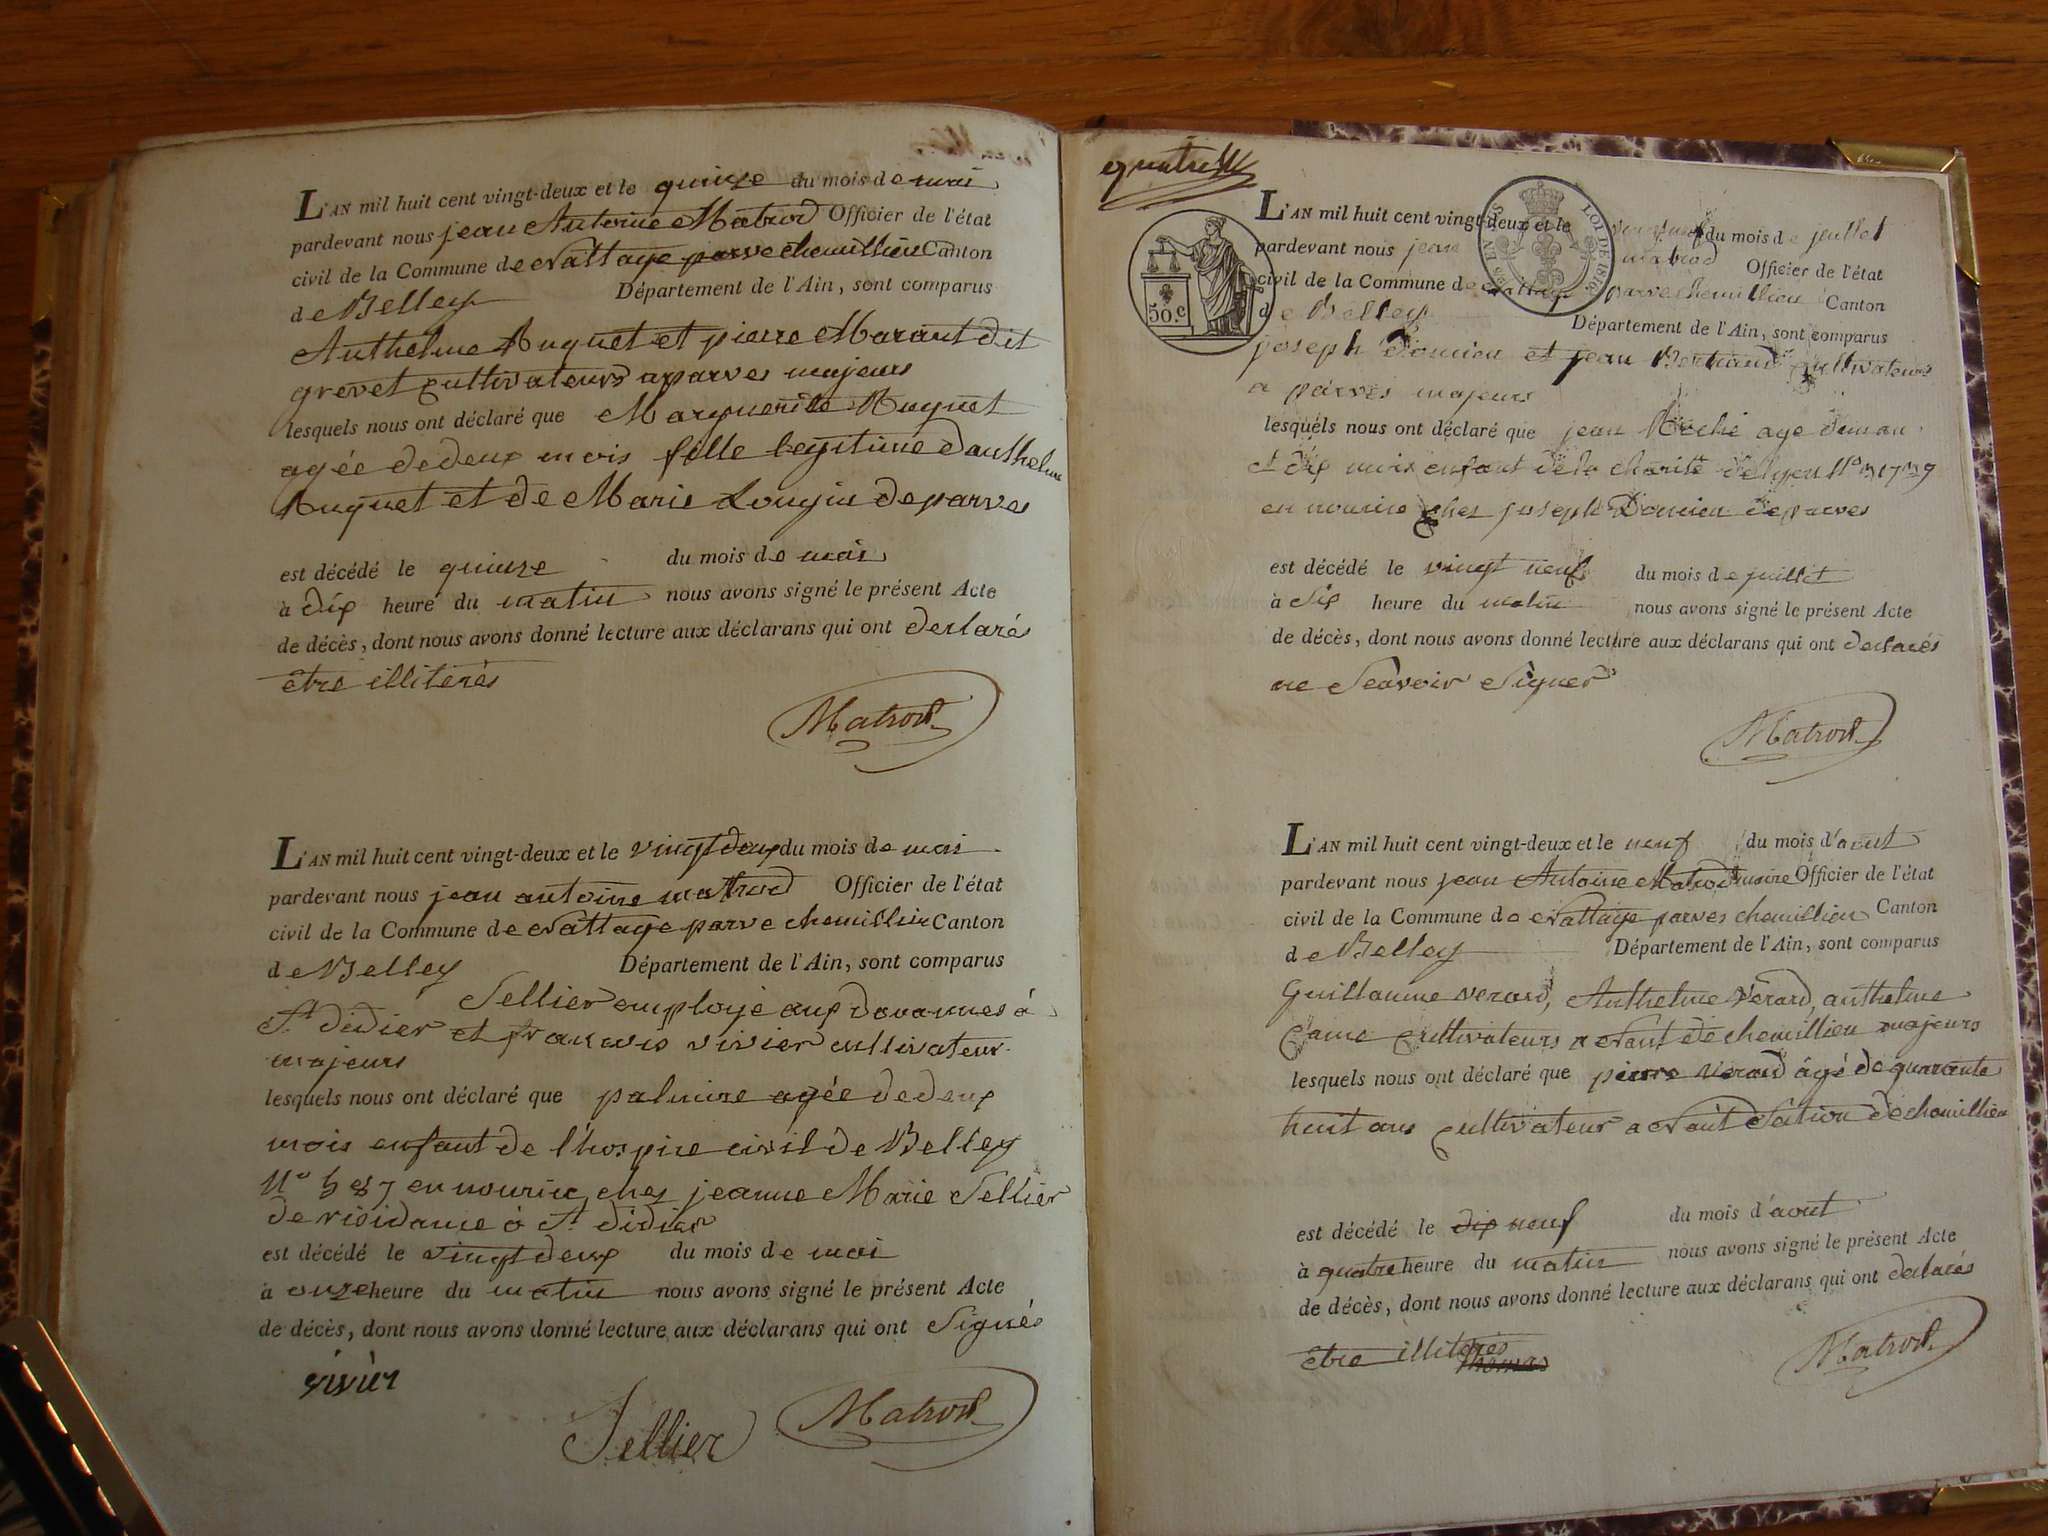 L'AN mil huit cent vingt-deux et le quinze du mois de mai
pardevant nous jean Antoine Matrod Officier de l'état
civil de la Commune de Nattage parve chemillieu Canton
de Belley Département de l'Ain, sont comparus
Anthelme Buynet et pierre Marant dit
grevet cultivateurs a parves majeurs
lesquels nous ont déclaré que Marguerite Buynet
agée de deux mois fille legitime d'anthelme
Buynet et de Marie Lougin de parves
est décédé le quinze du mois de mai
à dix heure du matin nous avons signé le présent Acte
de décès, dont nous avons donné lecture aux déclarans qui ont declarés
être illiterés
Matrod
L'AN mil huit cent vingt-deux et le vingt deux du mois de mai
pardevant nous jean antoine matrod Officier de l'état
civil de la Commune de Nattage parve chemillieu Canton
de Belley Département de l'Ain, sont comparus
Sellier employé aux Douannes à
St didier et francois vivier cultivateur
majeurs
lesquels nous ont déclaré que palmire agée de deux
mois enfant de l'hospice civil de Belley
No 587 en nourice chez jeanne Marie Sellier
de residance à St didier
est décédé le vingt deux du mois de mai
à onze heure du matin nous avons signé le présent Acte
de décès, dont nous avons donné lecture aux déclarans qui ont Signés
vivier
Sellier Matrod
quatre
50.c
LOI DE 1816
L'AN mil huit cent vingt-deux et le vingt neuf du mois de juillet
pardevant nous jean matrod Officier de l'état
civil de la Commune de Nattage parve chemillieu Canton
de Belley Département de l'Ain, sont comparus
joseph Doucien et jean Bertrand cultivateurs
a parves majeurs
lesquels nous ont déclaré que jean age d'un an
et dix mois enfant de la charité de lyon No
en nourice chez joseph Doucien de parves
est décédé le vingt neuf du mois de juillet
à six heure du matin nous avons signé le présent Acte
de décès, dont nous avons donné lecture aux déclarans qui ont declarés
ne Scavoir Signer
Matrod
L'AN mil huit cent vingt-deux et le neuf du mois d'aout
pardevant nous jean Antoine Matrod maire Officier de l'état
civil de la Commune de Nattage parves chemillieu Canton
de Belley Département de l'Ain, sont comparus
Guillaume Verard, Anthelme Verard, anthelme
Came cultivateurs a Nant de chemillieu majeurs
lesquels nous ont déclaré que pierre Verard âgé de quarante
huit ans cultivateur a Nant Section de chemillieu
est décédé le dix neuf du mois d'aout
à quatre heure du matin nous avons signé le présent Acte
de décès, dont nous avons donné lecture aux déclarans qui ont declarés
être illiterés
Matrod